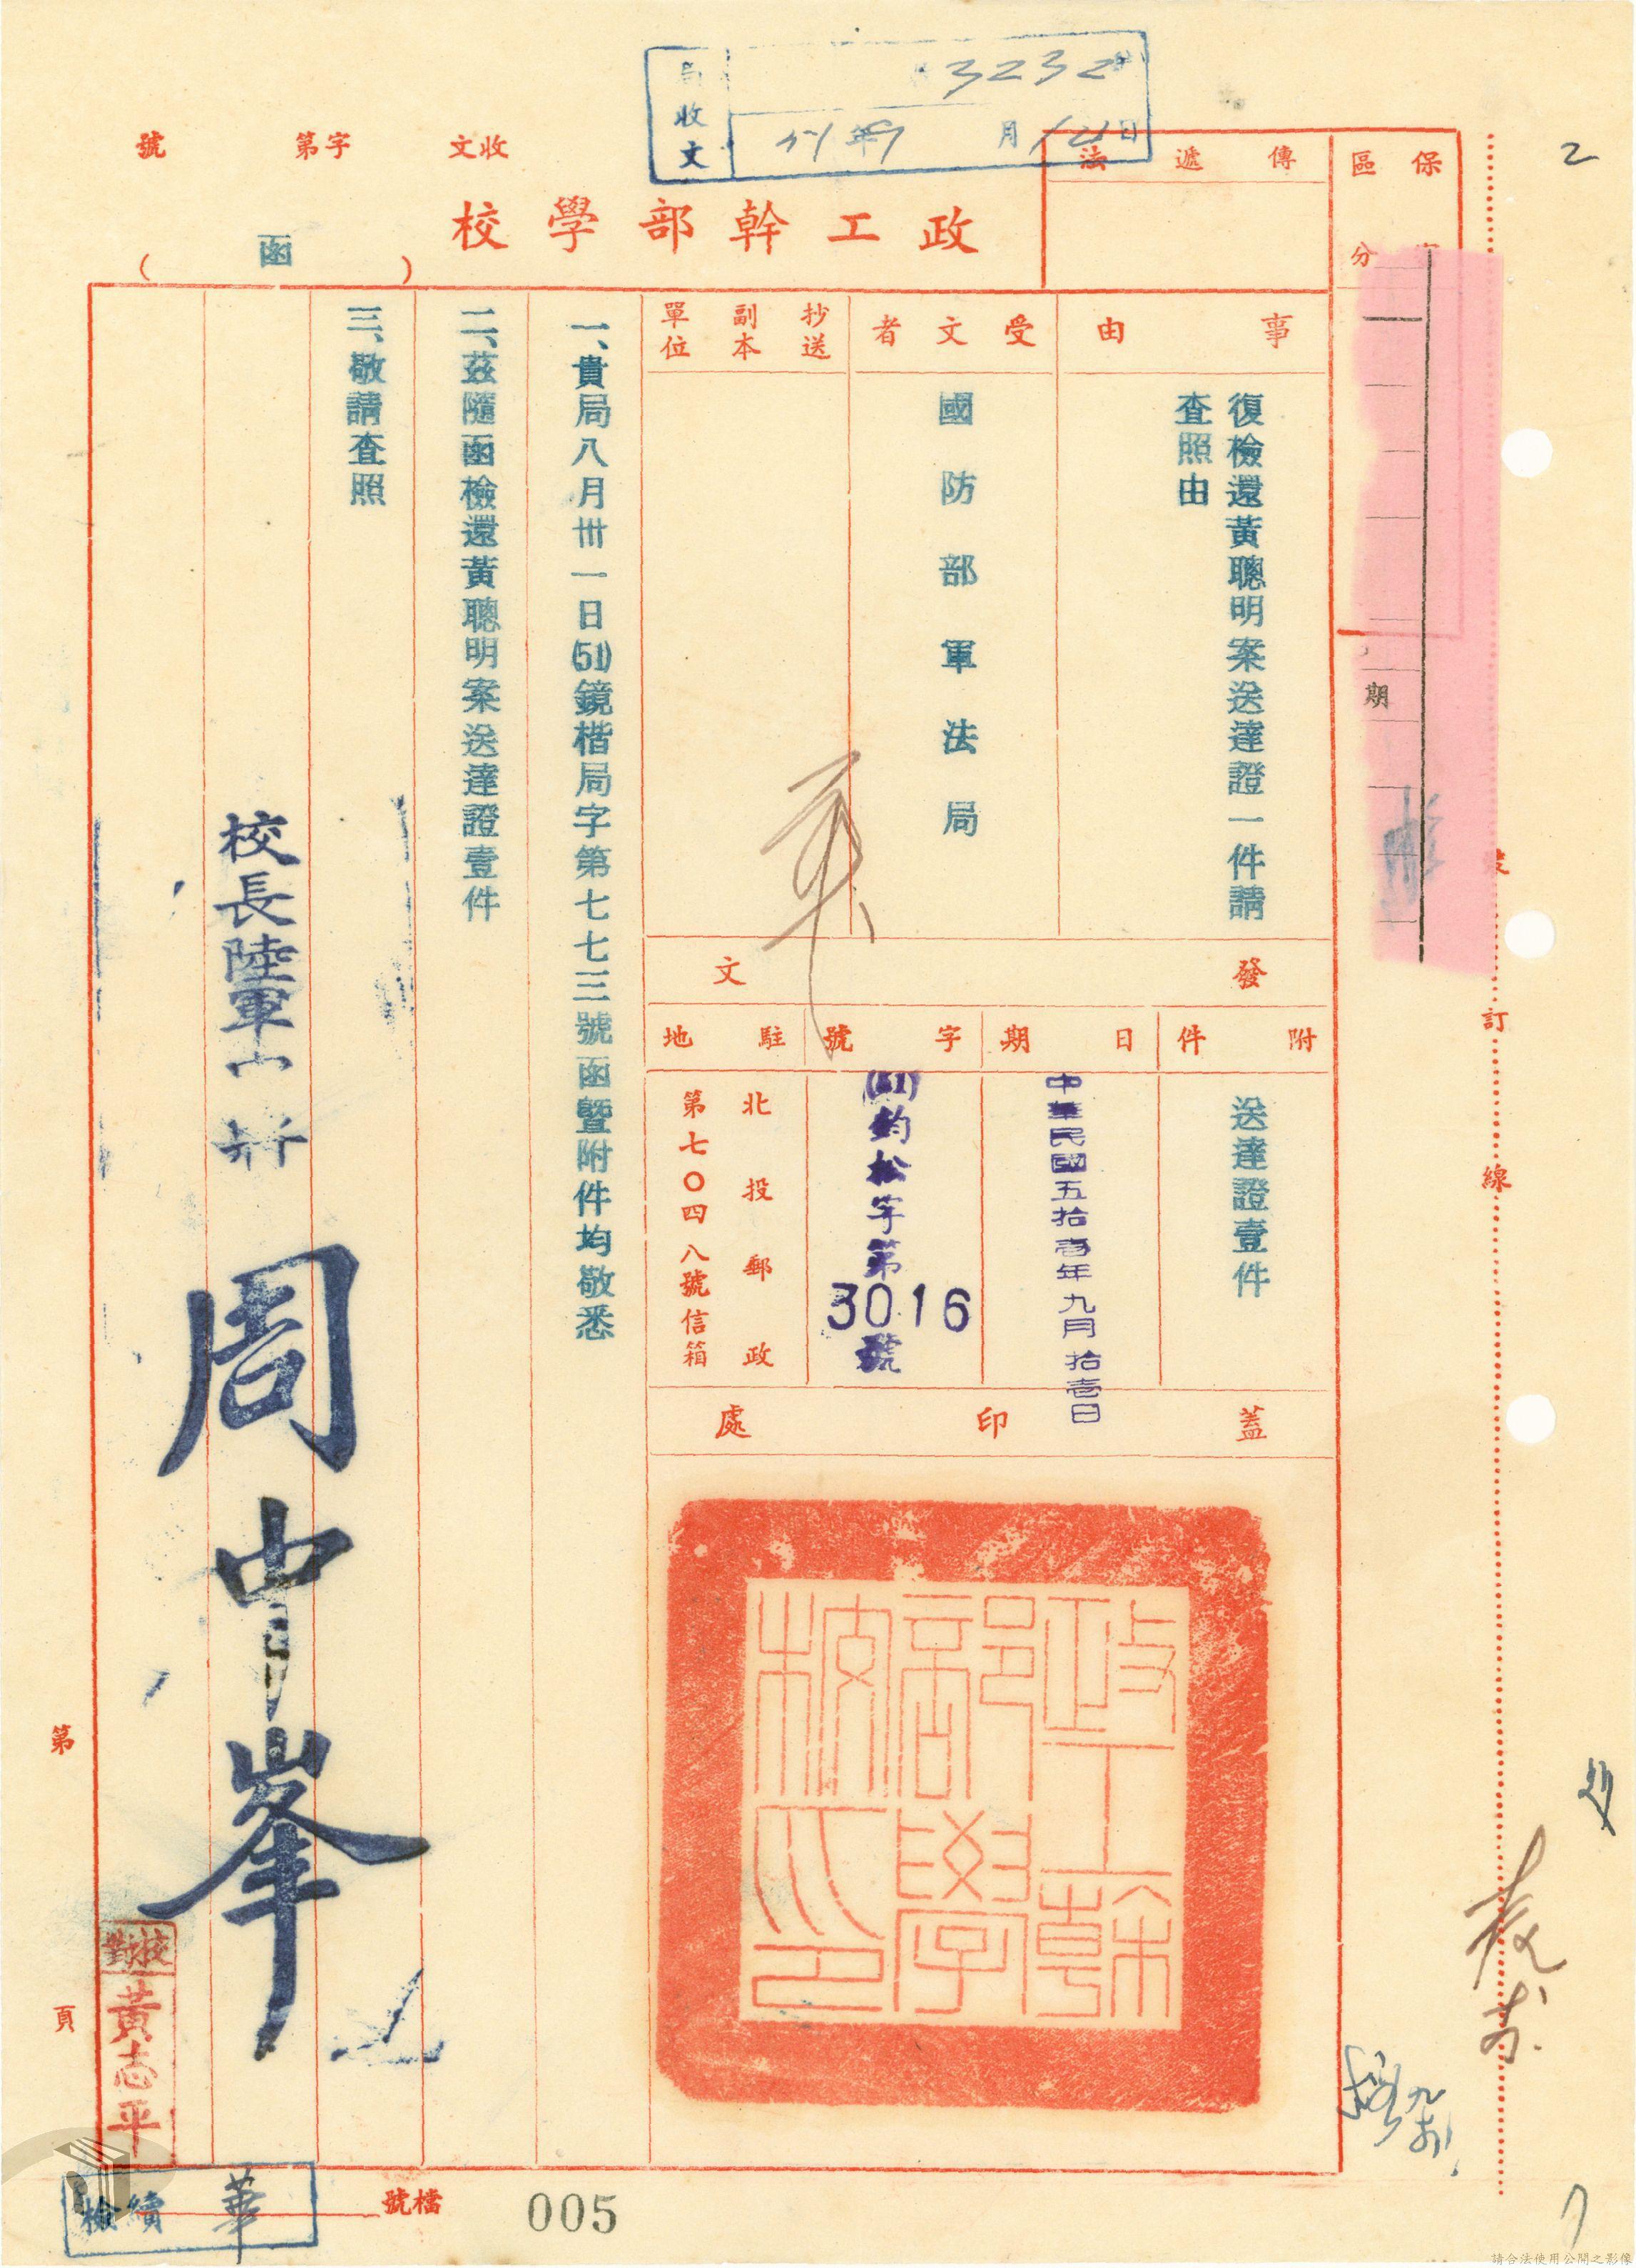 局收文
3232
年9月12日
收文 字第 號
政工幹部學校
(函)
保 區分
傳遞法
事由
復檢還黃聰明案送達證一件請
查照由
受文者
國防部軍法局
抄送副本單位
發文
附件
送達證壹件
日期
中華民國五拾壹年九月拾壹日
字號
(51)鈞松字第3016號
駐地
北投郵政
第七〇四八號信箱
蓋印處
政工幹部學校之印
一、貴局八月卅一日(51)鏡楷局字第七七三號函暨附件均敬悉
二、茲隨函檢還黃聰明案送達證壹件
三、敬請查照
校長陸軍
周中峯
校對
黃志平
第 頁
期
訂
線
2
檔號
005
續檢
華
請合法使用公開之影像